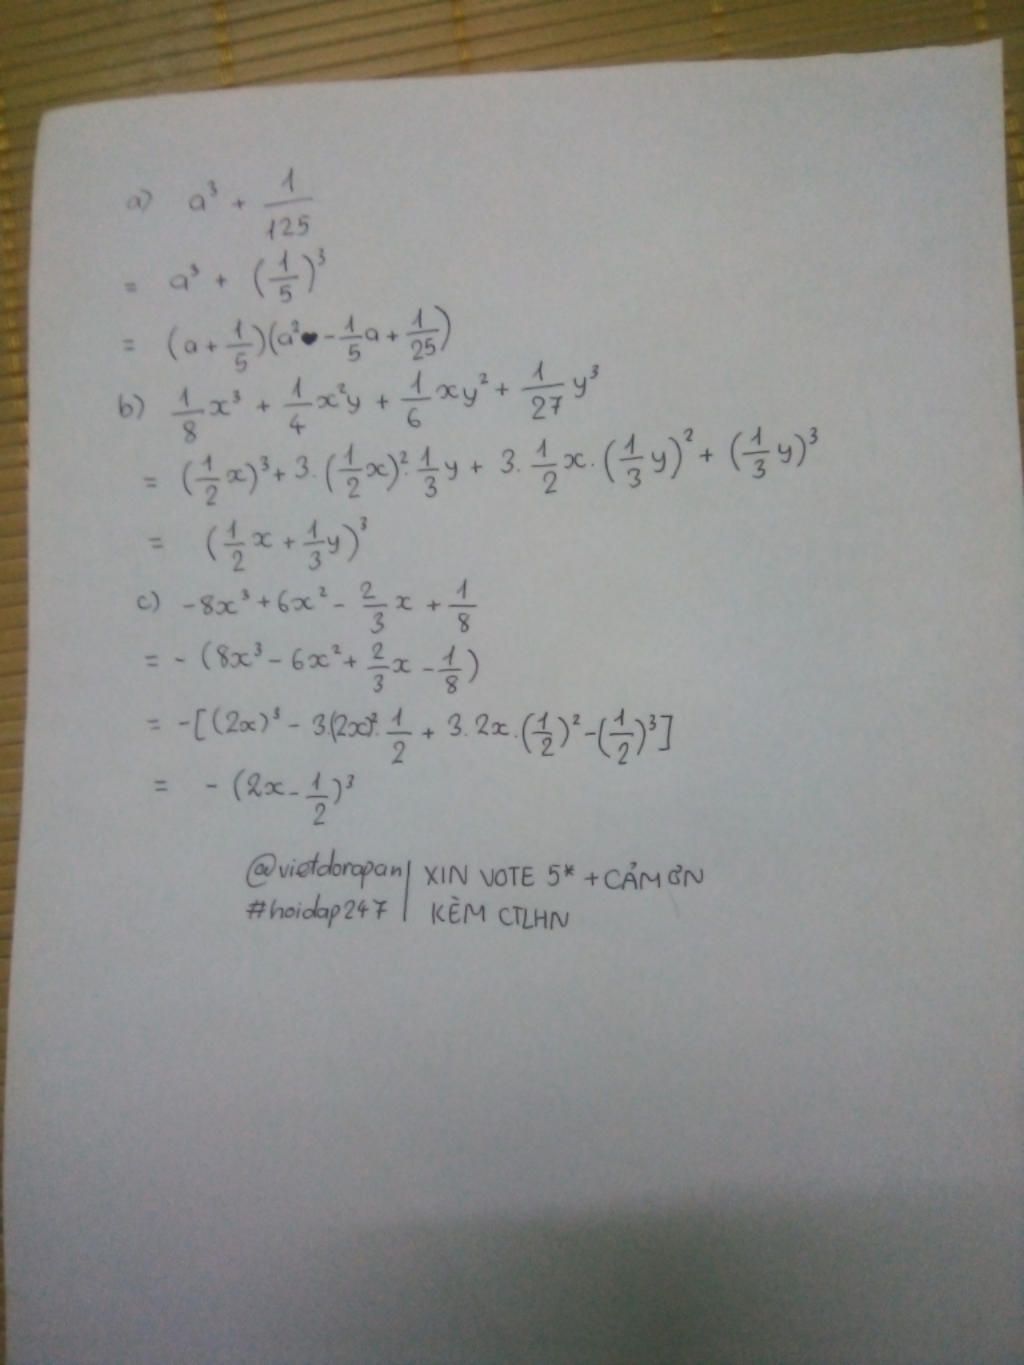 a) a³ + 1/125
= a³ + (1/5)³
= (a + 1/5)(a² - 1/5a + 1/25)
b) 1/8x³ + 1/4x²y + 1/6xy² + 1/27y³
= (1/2x)³ + 3.(1/2x)².1/3y + 3.1/2x.(1/3y)² + (1/3y)³
= (1/2x + 1/3y)³
c) -8x³ + 6x² - 2/3x + 1/8
= - (8x³ - 6x² + 2/3x - 1/8)
= -[(2x)³ - 3.(2x)².1/2 + 3.2x.(1/2)² - (1/2)³]
= - (2x - 1/2)³
@vietdorapan | XIN VOTE 5* + CẢM ƠN
#hoidap247 | KÈM CTLHN